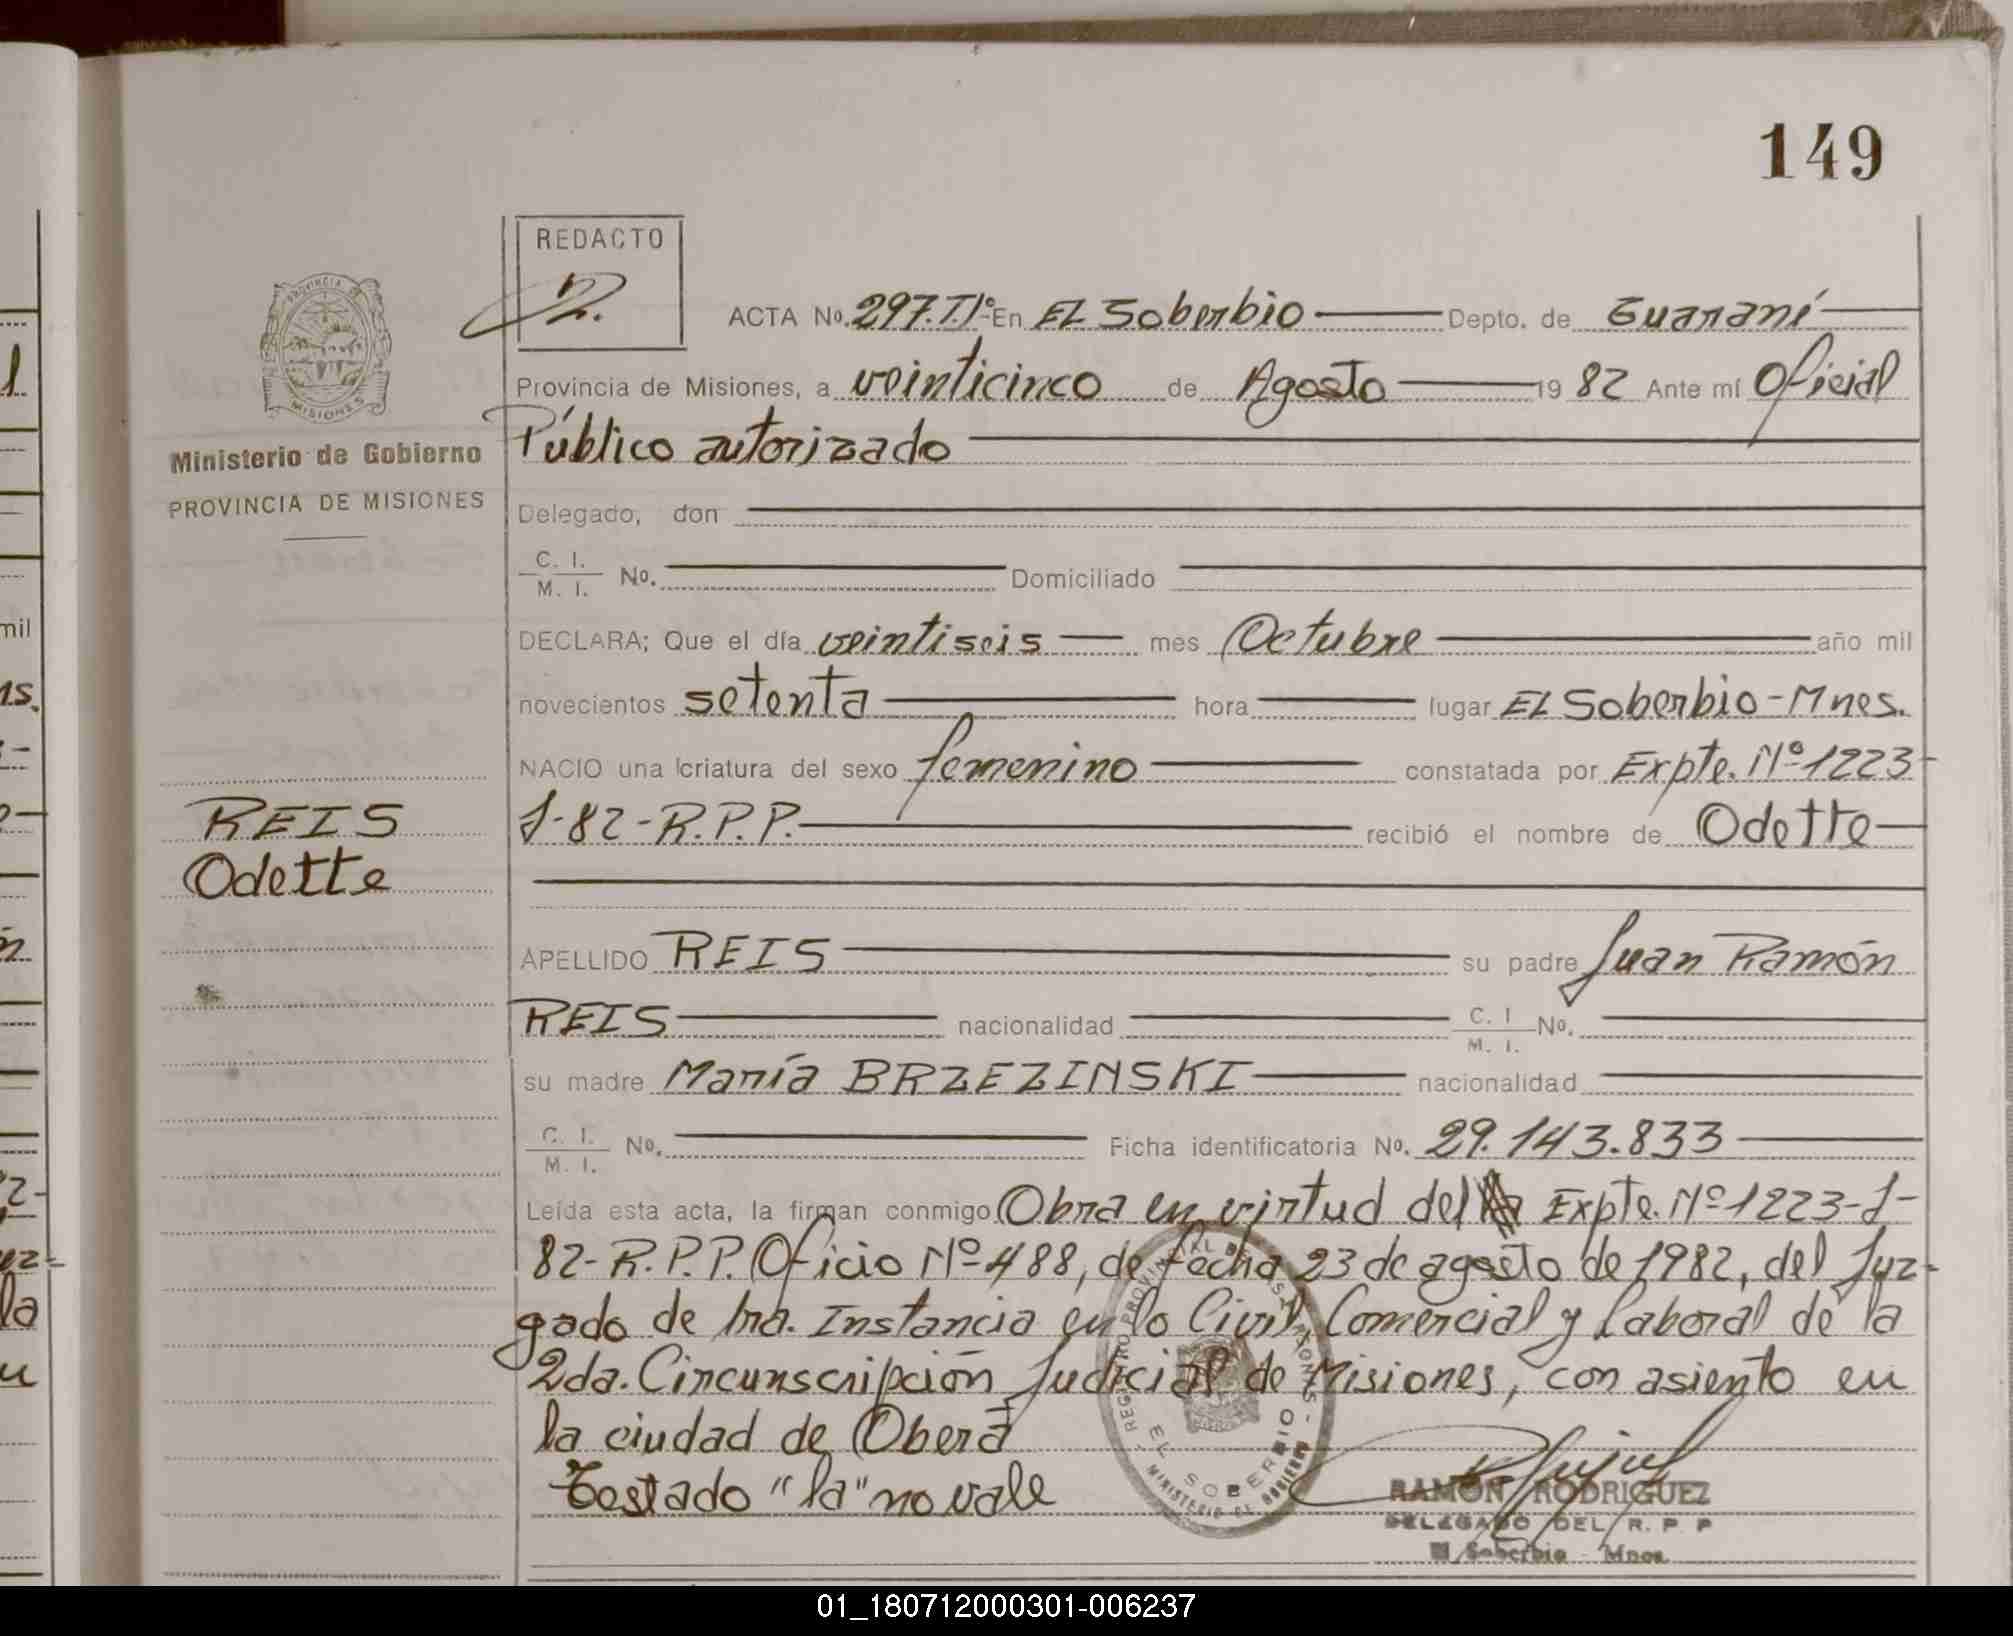 149
REDACTO
ACTA No. 297.T.1º En EL Soberbio Depto. de Guaraní
Provincia de Misiones, a veinticinco de Agosto 19 82 Ante mí Oficial
Ministerio de Gobierno
PROVINCIA DE MISIONES
Público autorizado
Delegado, don
C. I.
M. I. No. Domiciliado
DECLARA; Que el día veintiseis mes Octubre año mil
novecientos setenta hora lugar EL Soberbio - Mnes.
NACIO una criatura del sexo femenino constatada por Expte. Nº 1223-
J-82-R.P.P. recibió el nombre de Odette
REIS
Odette
APELLIDO REIS su padre Juan Ramón
REIS nacionalidad C. I. M. I. No.
su madre María BRZEZINSKI nacionalidad
C. I.
M. I. No. Ficha identificatoria No. 29.143.833
Leída esta acta, la firman conmigo Obra en virtud del Expte. Nº 1223-J-
82-R.P.P. Oficio Nº 488, de fecha 23 de agosto de 1982, del Juz-
gado de 1ra. Instancia en lo Civil, Comercial y Laboral de la
2da. Circunscripción Judicial de Misiones, con asiento en
la ciudad de Oberá
Testado "la" no vale
REGISTRO PROVINCIAL DE LAS PERSONAS
EL SOBERBIO
MINISTERIO DE GOBIERNO
RAMON RODRIGUEZ
DELEGADO DEL R. P. P
El Soberbio - Mnes.
PROVINCIA DE
MISIONES
mil
la
01_180712000301-006237